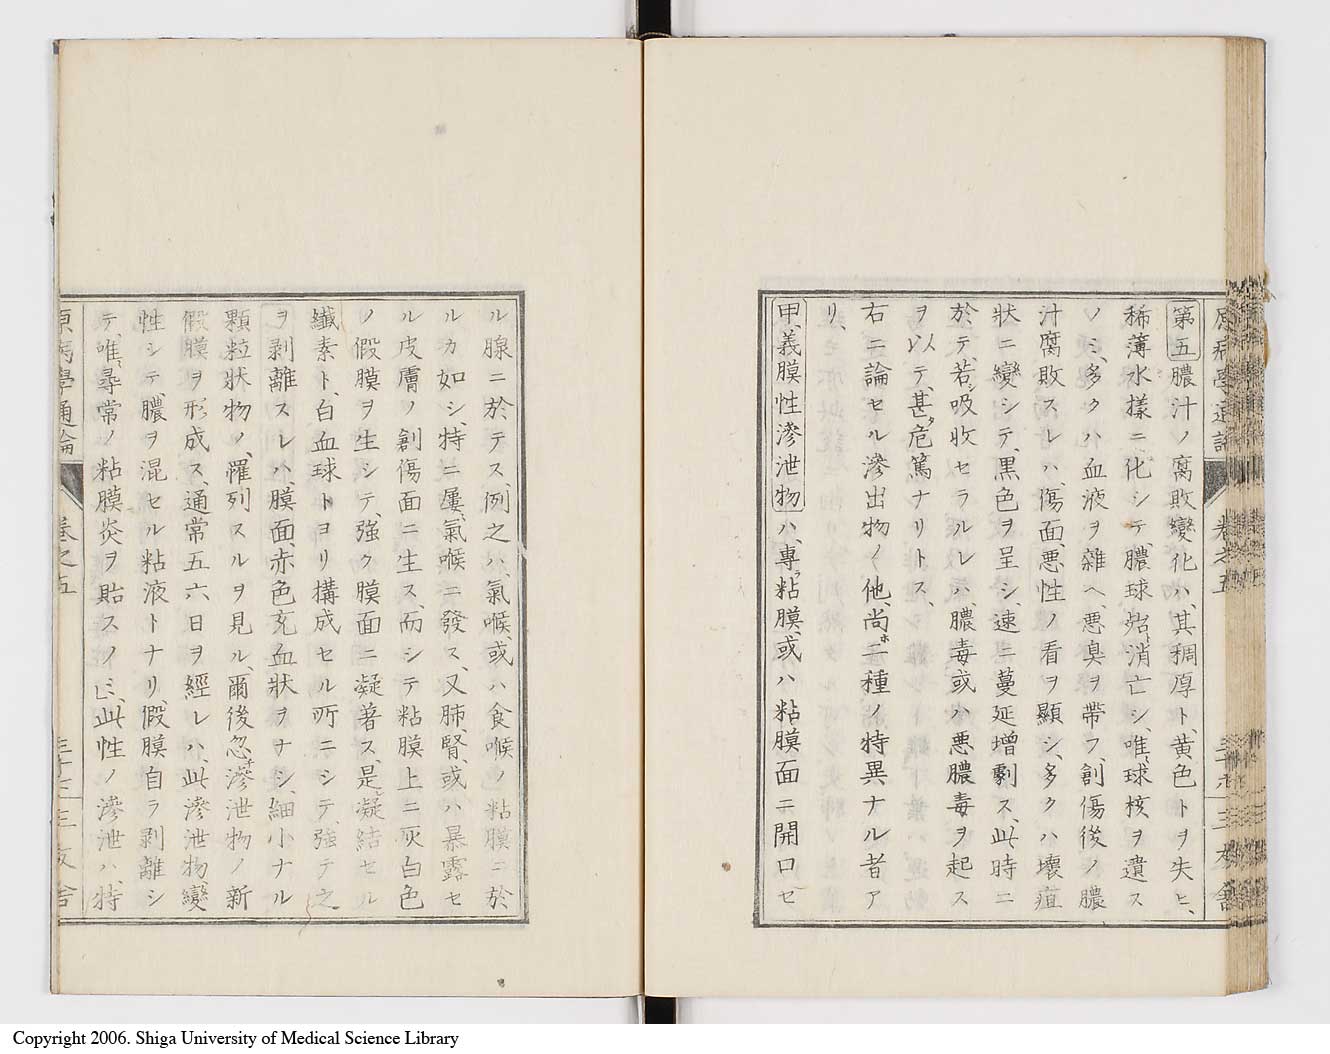 第五膿汁ノ腐敗變化ハ、其稠厚ト、黄色トヲ失ヒ、
稀薄水樣ニ、化シテ、膿球殆ト消亡シ、唯球核ヲ遺ス
ノミ、多クハ血液ヲ雜ヘ、悪臭ヲ帶フ、創傷後ノ膿
汁腐敗スレハ、傷面、悪性ノ看ヲ顯シ、多クハ壞疽
狀ニ變シテ、黒色ヲ呈シ、速ニ蔓延增劇ス、此時ニ
於テ、若シ吸收セラルレハ膿毒或ハ悪膿毒ヲ起ス
ヲ以テ、甚タ危篤ナリトス、
右ニ論セル滲出物ノ他、尚ホ二種ノ特異ナル者ア
リ、
甲、義膜性滲泄物ハ、專ラ粘膜、或ハ粘膜面ニ開口セ
ル腺ニ於テス、例之ハ、氣喉、或ハ食喉ノ粘膜ニ於
ルカ如シ、特ニ屢氣喉ニ發ス、又肺、腎、或ハ暴露セ
ル皮膚ノ創傷面ニ生ス、而シテ粘膜上ニ灰白色
ノ假膜ヲ生シテ、強ク膜面ニ凝著ス、是レ凝結セル
纖素ト、白血球トヨリ構成セル所ニシテ、強テ之
ヲ剥離スレハ、膜面、赤色充血狀ヲナシ、細小ナル
顆粒狀物ノ、羅列スルヲ見ル、爾後忽チ滲泄物ノ新
假膜ヲ形成ス、通常五六日ヲ經レハ、此滲泄物變
性シテ、膿ヲ混セル粘液トナリ、假膜自ラ剥離シ
テ、唯尋常ノ粘膜炎ヲ貽スノミ、此性ノ滲泄ハ、特
原病學通論 卷之五 三十三 三友舍